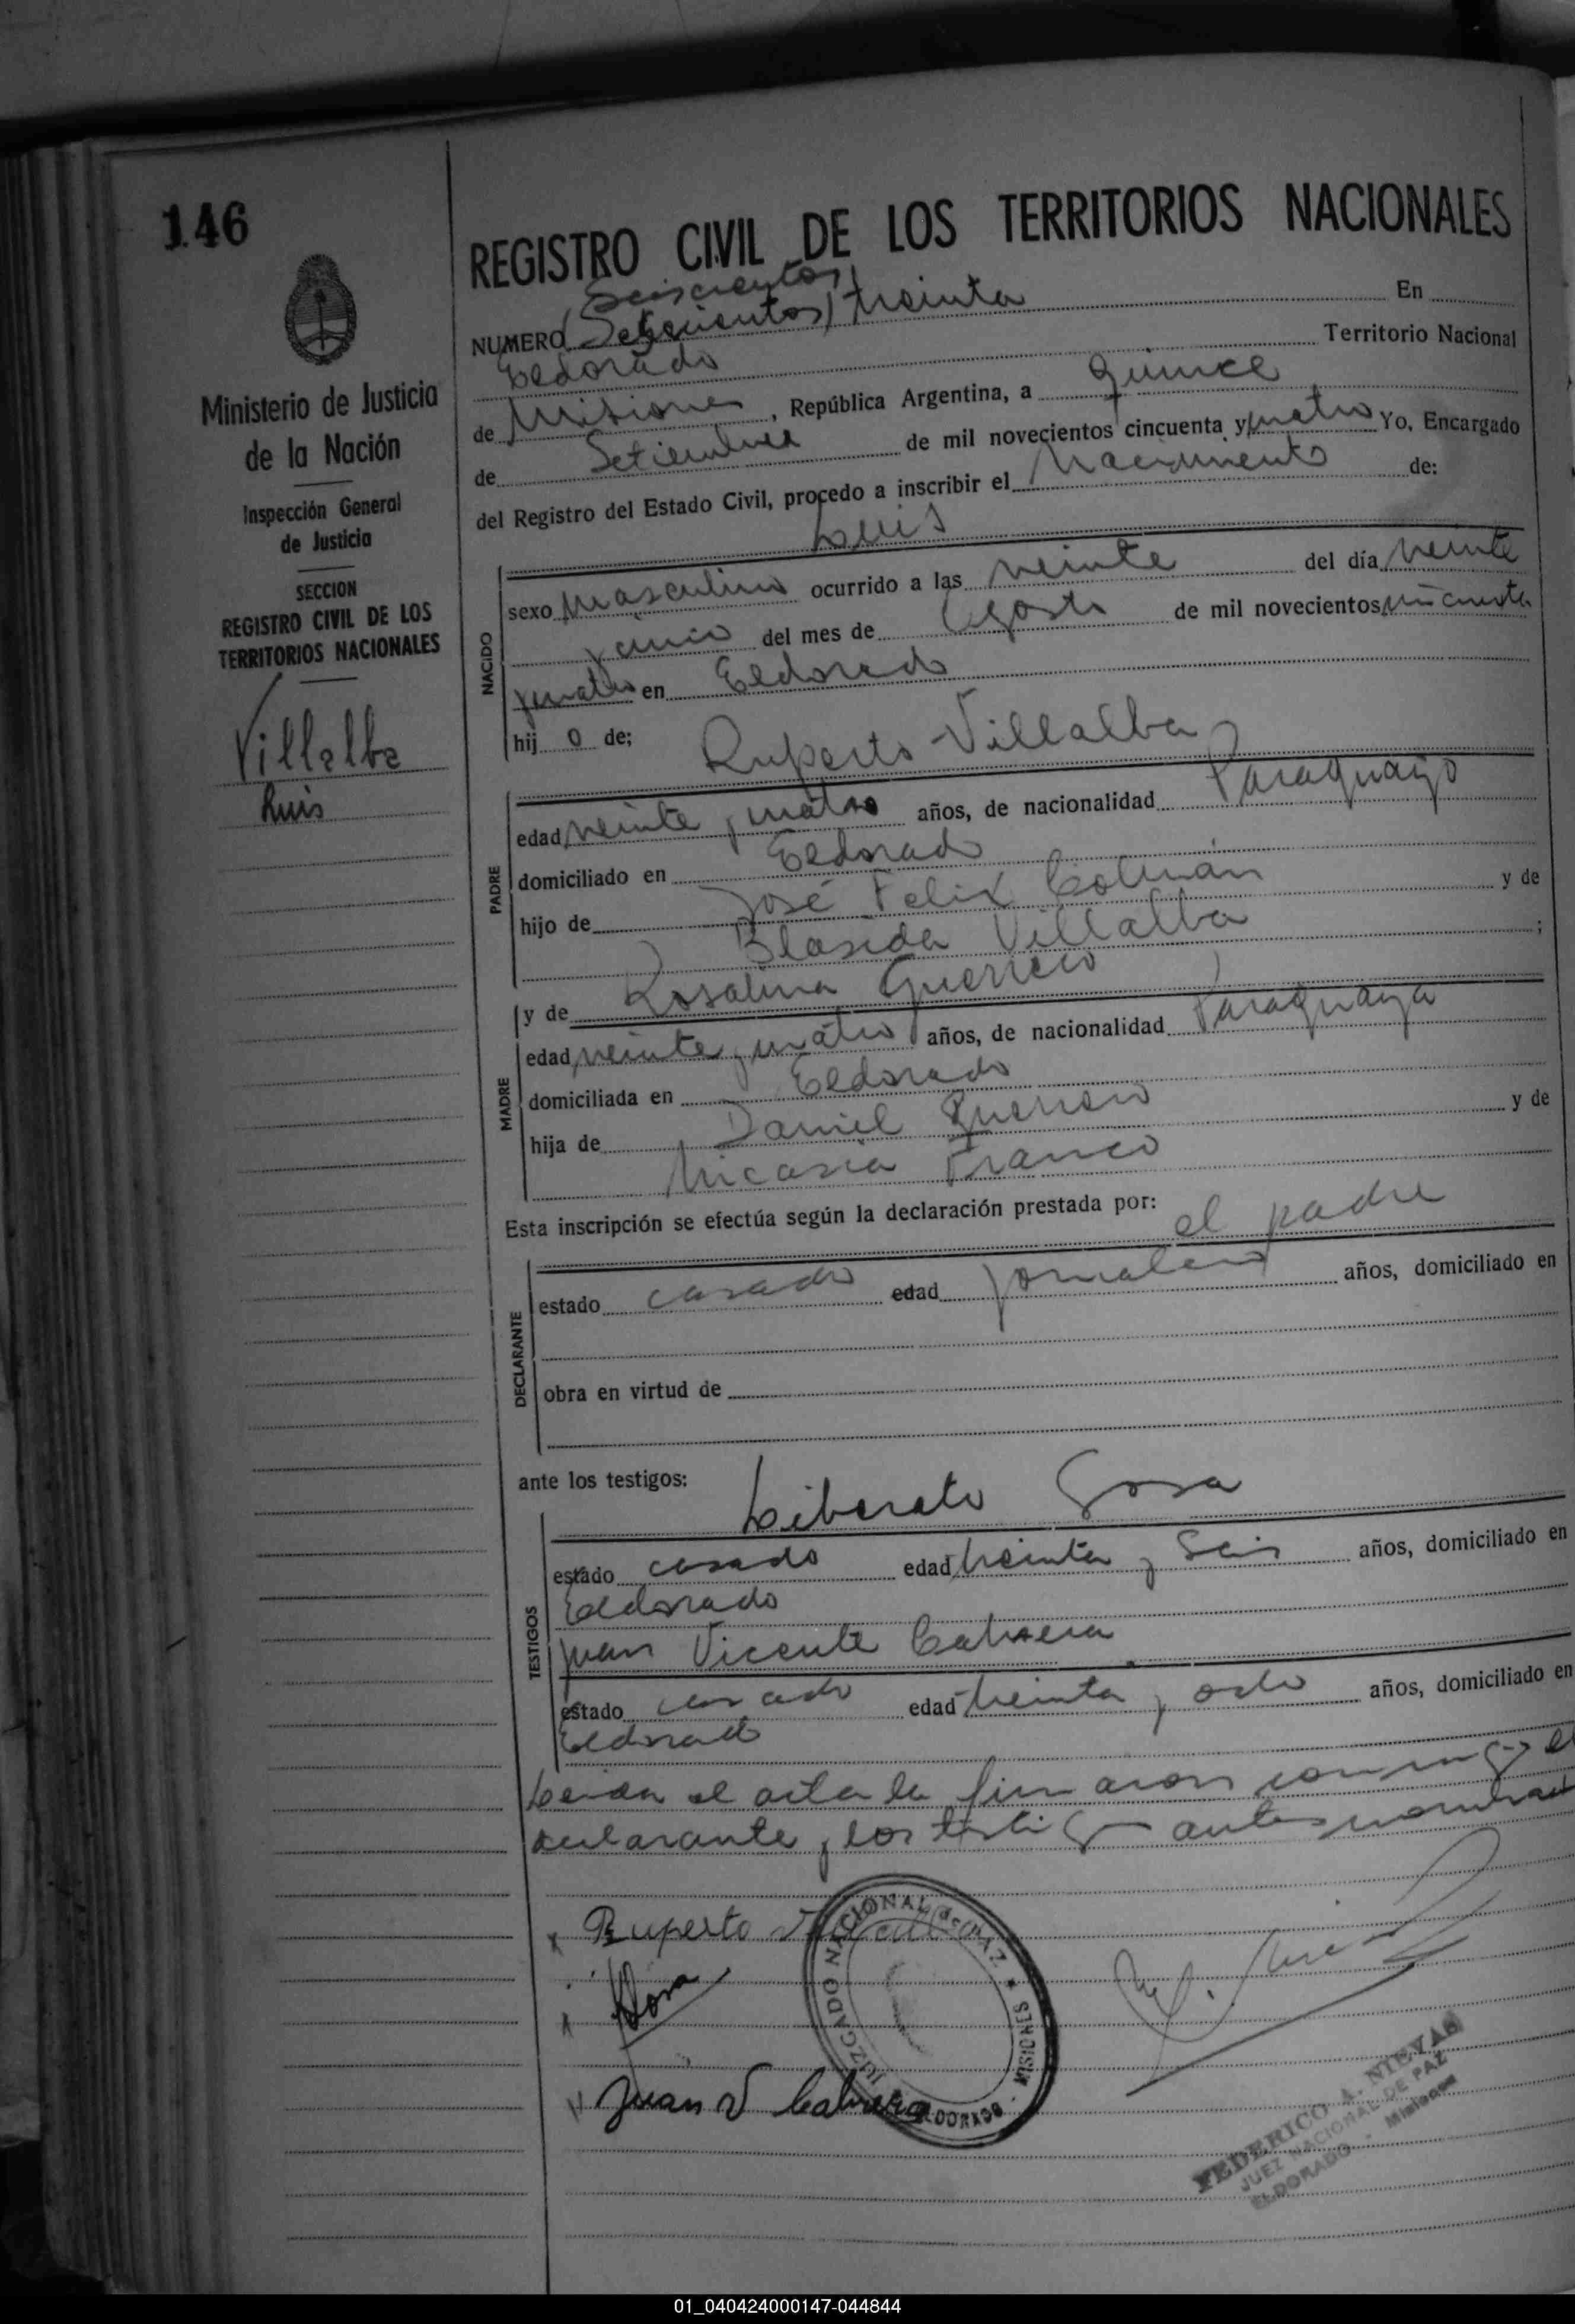 146
Ministerio de Justicia
de la Nación
Inspección General
de Justicia
SECCION
REGISTRO CIVIL DE LOS
TERRITORIOS NACIONALES
Villalba
Luis
REGISTRO CIVIL DE LOS TERRITORIOS NACIONALES
Seiscientos
NUMERO (Setecientos) treinta En
Eldorado Territorio Nacional
de Misiones, República Argentina, a quince
de Setiembre de mil novecientos cincuenta y cuatro Yo, Encargado
del Registro del Estado Civil, procedo a inscribir el Nacimiento de:
Luis
NACIDO
sexo masculino ocurrido a las veinte del día veinte
y cinco del mes de Agosto de mil novecientos cincuenta
y cuatro en Eldorado
hij o de; Ruperto Villalba
PADRE
edad veinte y cuatro años, de nacionalidad Paraguayo
domiciliado en Eldorado
hijo de José Felix Colmán y de
Blasida Villalba ;
y de Rosalina Guerrero
MADRE
edad veinte y cuatro años, de nacionalidad Paraguaya
domiciliada en Eldorado
hija de Daniel Guerrero y de
Nicasia Franco
Esta inscripción se efectúa según la declaración prestada por: el padre
DECLARANTE
estado casado edad jornalero años, domiciliado en
obra en virtud de
ante los testigos: Liberato Sosa
TESTIGOS
estado casado edad treinta y seis años, domiciliado en
Eldorado
Juan Vicente Cabrera
estado casado edad treinta y ocho años, domiciliado en
Eldorado
Leida el acta la firmaron conmigo el
declarante y los testigos antes nombrad
x Ruperto Villalba
x Sosa
x Juan V Cabrera
JUZGADO NACIONAL de PAZ * MISIONES - ELDORADO
FEDERICO A. NIEVAS
JUEZ NACIONAL DE PAZ
ELDORADO - Misiones
01_040424000147-044844